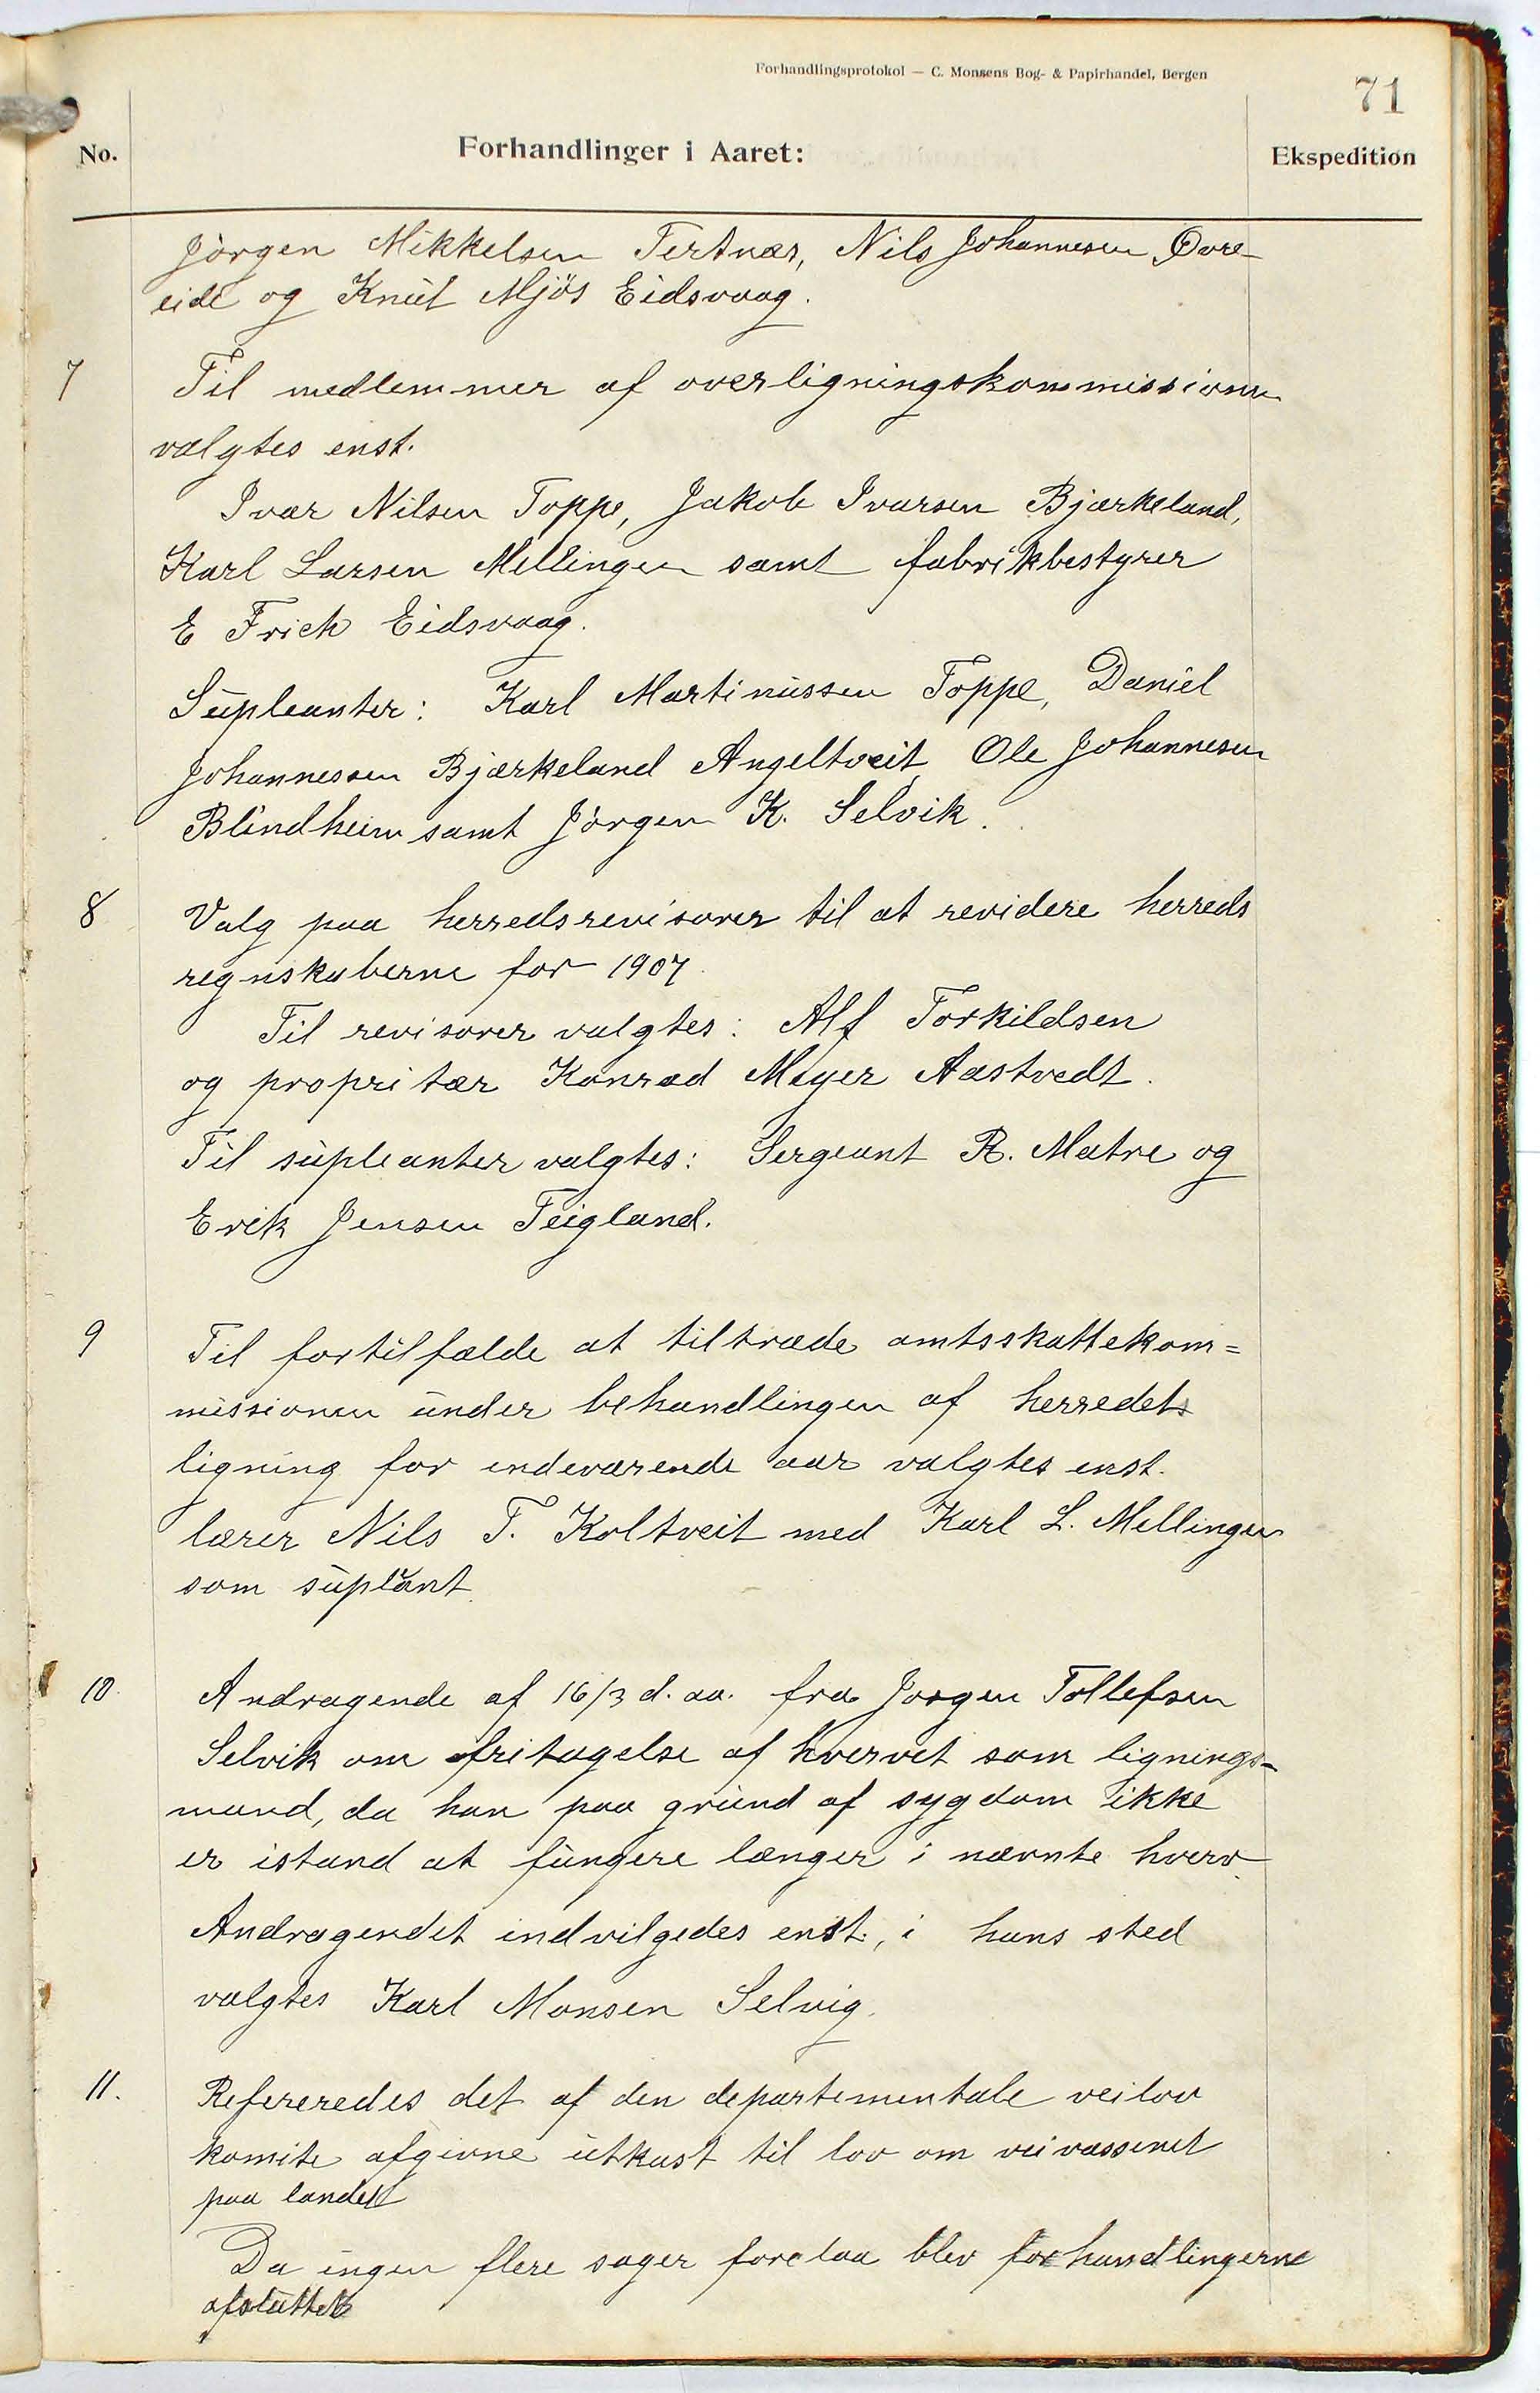 Forhandlingsprotokol — C. Monsens Bog- & Papirhandel, Bergen
71
No.
Forhandlinger i Aaret:
Ekspedition
Jörgen Mikkelsen Tertnæs, Nils Johannesen Övre-
eide og Knut Mjös Eidsvaag.
7
Til medlemmer af overligningskommissionen
valgtes enst.
Ivar Nilsen Toppe, Jakob Ivarsen Bjærkeland,
Karl Larsen Mellingen samt fabrikbestyrer
E Frich Eidsvaag.
Supleanter: Karl Martinussen Toppe, Daniel
Johannessen Bjærkeland Angeltveit, Ole Johannesen
Blindheim samt Jörgen K. Selvik.
8
Valg paa herredsrevisorer til at revidere herreds
regnskaberne for 1907.
Til revisorer valgtes: Alf Torkildsen
og propritær Konrad Meyer Aastvedt.
Til supleanter valgtes: Sergeant R. Matre og
Erik Jensen Teigland.
9
Til fortilfælde at tiltræde amtsskattekom=
missionen under behandlingen af herredets
ligning for indeværende aar valgtes enst.
lærer Nils T. Koltveit med Karl L. Mellingen
som suplant.
10.
Andragende af 16/3 d. aa. fra Jörgen Tollefsen
Selvik om fritagelse af hvervet som lignings-
mand, da han paa grund af sygdom ikke
er istand at fungere længer i nævnte hverv.
Andragendet indvilgedes enst., i hans sted
valgtes Karl Monsen Selvig.
11.
Refereredes det af den departementale veilov
komite afgivne utkast til lov om veivæssenet
paa landet
Da ingen flere sager forelaa blev forhandlingerne
afsluttet